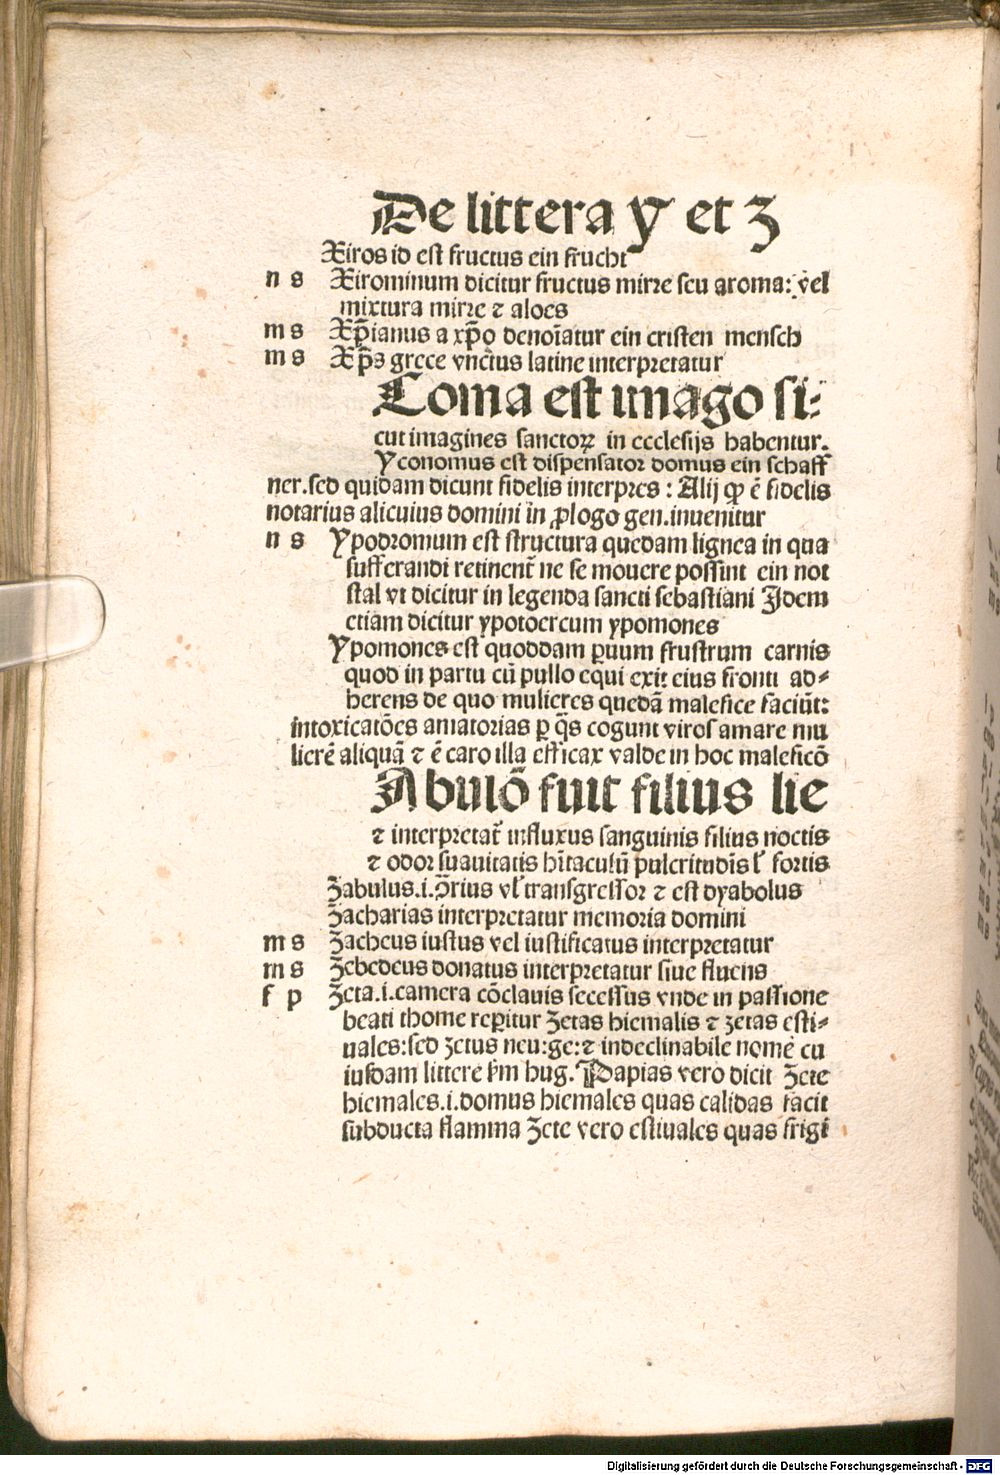 De littera y et ʒ
Xiros id est fructus ein frucht
n s Xirominum dicitur fructus mirre seu aroma: vel
mixtura mirre ⁊ aloes
m s Xp̄ianus a xp̄o denoīatur ein cristen mensch
m s Xp̄s grece vnctus latine interpretatur
Coma est imago si⸗
cut imagines sanctoꝝ in ecclesijs habentur.
Yconomus est dispensator domus ein schaff
ner. sed quidam dicunt fidelis interpres : Alij ꝙ ē fidelis
notarius alicuius domini in ꝓlogo gen. inuenitur
n s Ypodromum est structura quedam lignea in qua
sufferandi retinent̄ ne se mouere possint ein not
stal vt dicitur in legenda sancti sebastiani Idem
etiam dicitur ypotoercum ypomones
Ypomones est quoddam ꝑuum frustrum carnis
quod in partu cū pullo equi exit eius fronti ad⸗
herens de quo mulieres quedā malefice faciūt:
intoxicatōes amatorias ꝑ q̄s cogunt viros amare mu
lierē aliquā ⁊ ē caro illa efficax valde in hoc maleficō
Abulō fuit filius lie
⁊ interpretat̄ influxus sanguinis filius noctis
⁊ odor suauitatis hītaculū pulcritudīs ł fortis
Zabulus .i. ꝯ̄rius vł transgressor ⁊ est dyabolus
Zacharias interpretatur memoria domini
m s Zacheus iustus vel iustificatus interpretatur
m s Zebedeus donatus interpretatur siue fluens
f p Zeta .i. camera cōclauis secessus vnde in passione
beati thome reꝑitur zetas hiemalis ⁊ zetas esti⸗
uales: sed zetus neu: ge: ⁊ indeclinabile nomē cu
iusdam littere ẜm hug. Papias vero dicit Zete
hiemales .i. domus hiemales quas calidas facit
subducta flamma Zete vero estiuales quas frigi
Digitalisierung gefördert durch die Deutsche Forschungsgemeinschaft - DFG